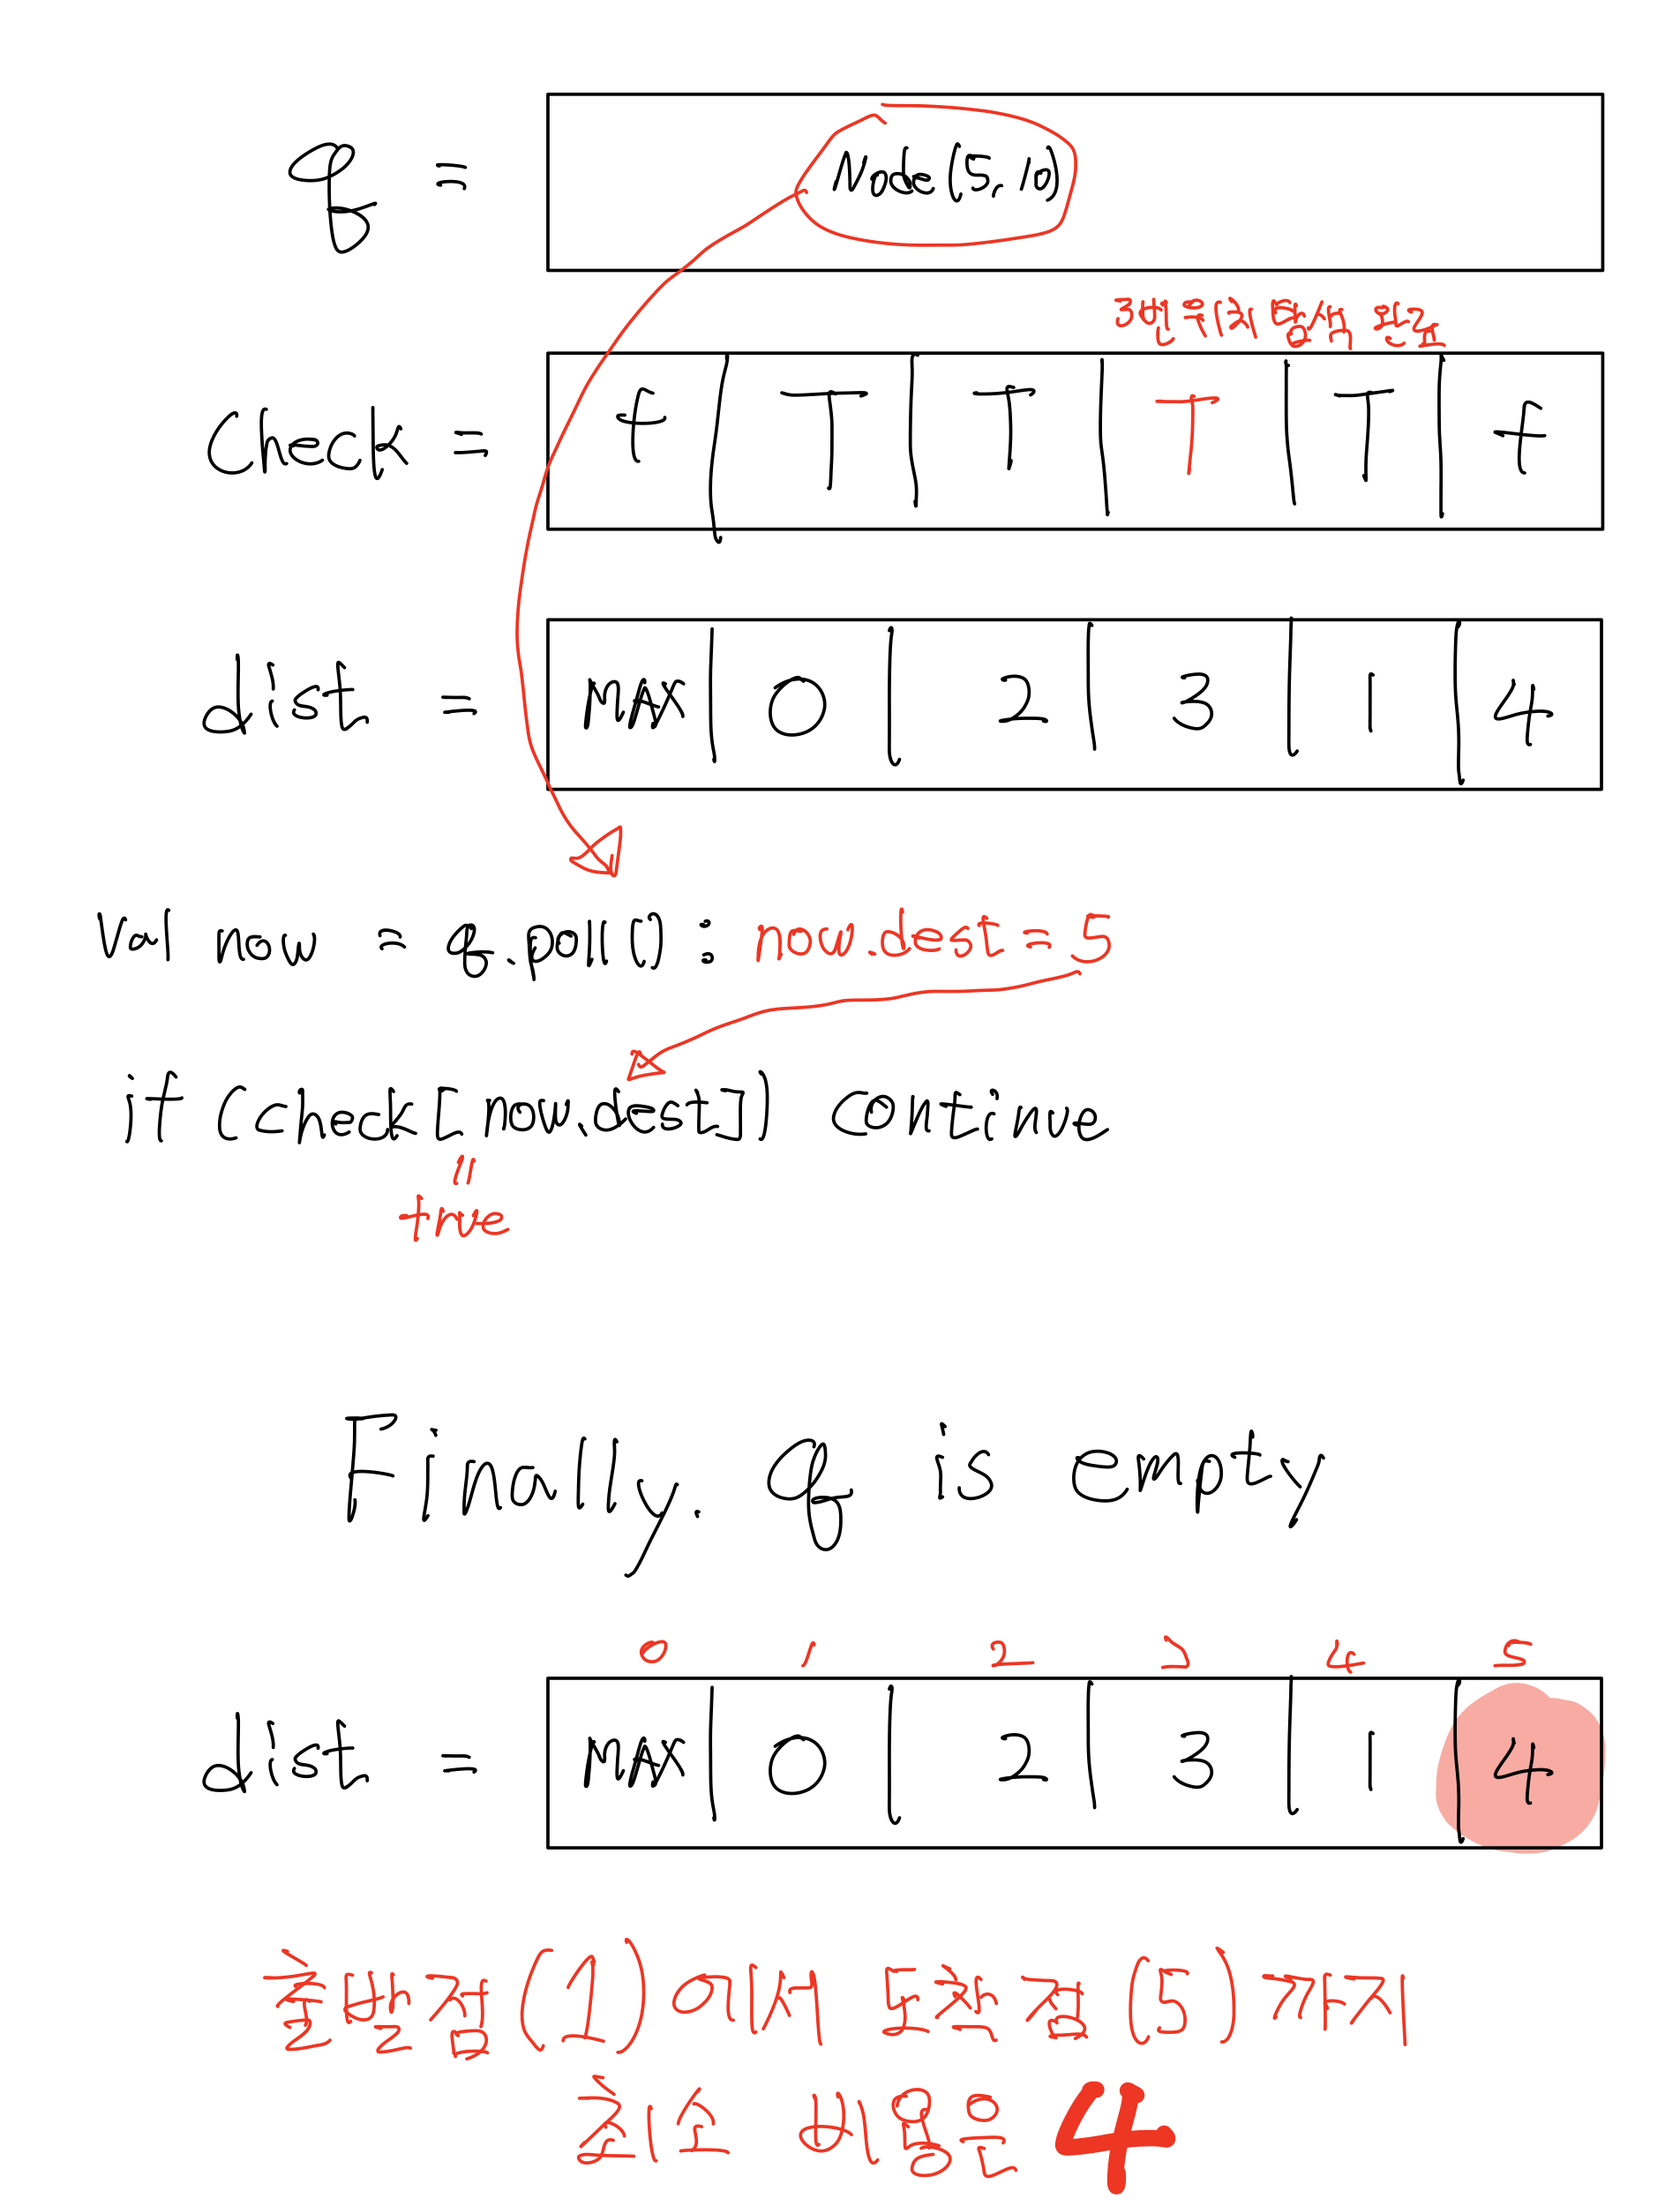 q =
Node(5, 10)
3번 위치 탐색 완료
Check = f T T T T f
dist = MAX 0 2 3 1 4
Val now = q.poll() : now.dest = 5
if (check[now.dest]) continue
=
true
Finally, q is empty
0 1 2 3 4 5
dist = MAX 0 2 3 1 4
출발점(1)에서 도착점(5)까지
최소 비용은 4